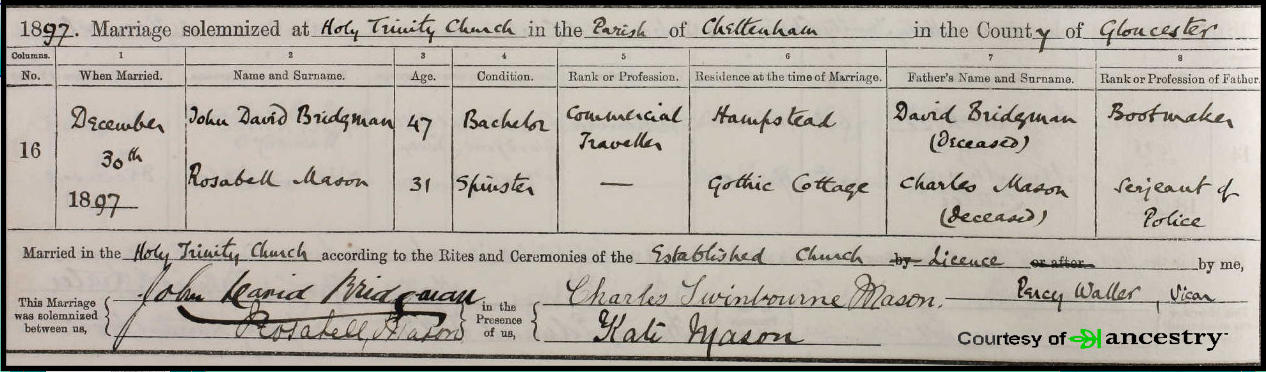 1897. Marriage solemnized at Holy Trinity Church in the Parish of Cheltenham in the County of Gloucester
Columns. 1 2 3 4 5 6 7 8
No. When Married. Name and Surname. Age. Condition. Rank or Profession. Residence at the time of Marriage. Father's Name and Surname. Rank or Profession of Father.
16
December
30th
1897
John David Bridgman 47 Bachelor Commercial
Traveller
Hampstead David Bridgman
(Deceased)
Bootmaker
Rosabell Mason 31 Spinster — Gothic Cottage Charles Mason
(Deceased)
Serjeant of
Police
Married in the Holy Trinity Church according to the Rites and Ceremonies of the Established Church by Licence or after by me,
This Marriage
was solemnized
between us,
John David Bridgman
Rosabell Mason
in the
Presence
of us,
Charles Swinbourne Mason.
Kate Mason
Percy Waller, Vicar
Courtesy of ancestry